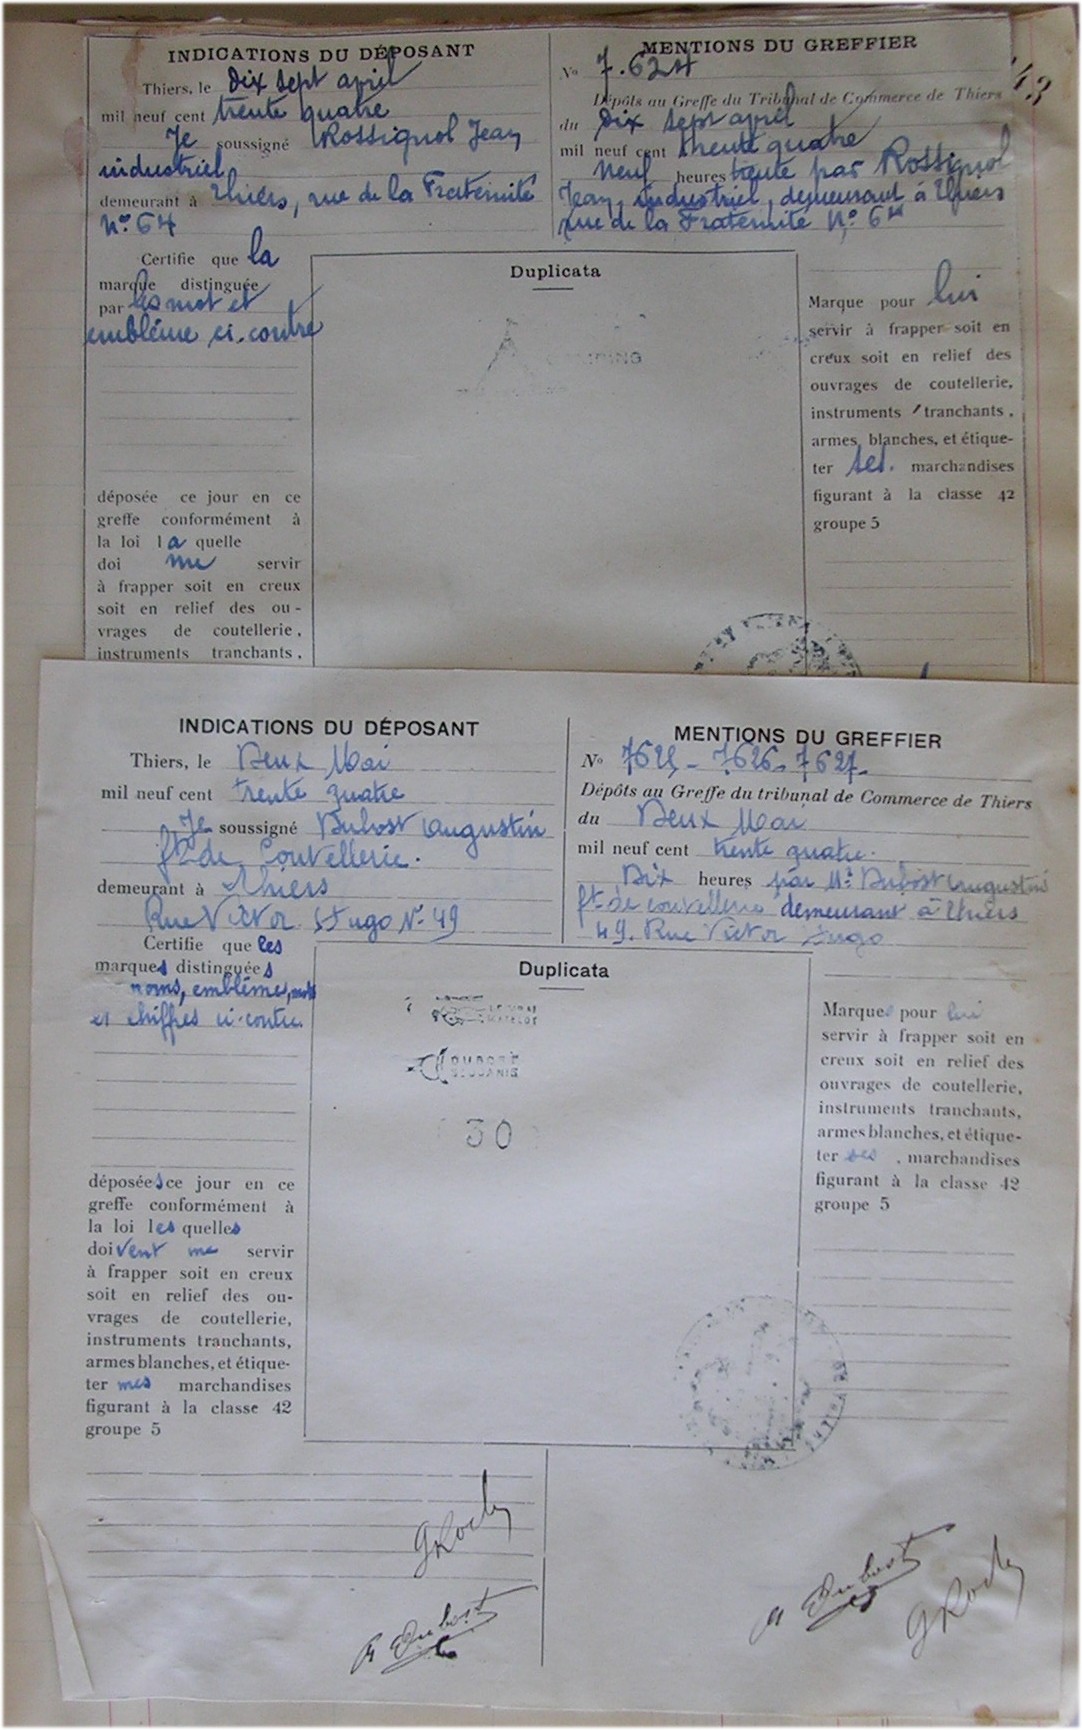 INDICATIONS DU DÉPOSANT
Thiers, le dix sept avril
mil neuf cent trente quatre
Je soussigné Rossignol Jean
industriel
demeurant à Thiers, rue de la Fraternité
N° 64
Certifie que la
marque distinguée
par les mot et
emblême ci-contre
déposée ce jour en ce
greffe conformément à
la loi la quelle
doi me servir
à frapper soit en creux
soit en relief des ou-
vrages de coutellerie,
instruments tranchants,
MENTIONS DU GREFFIER
N° 7.624
Dépôts au Greffe du Tribunal de Commerce de Thiers
du dix sept avril
mil neuf cent trente quatre
neuf heures trente par Rossignol
Jean, industriel, demeurant à Thiers
rue de la Fraternité N° 64
Duplicata
Marque pour lui
servir à frapper soit en
creux soit en relief des
ouvrages de coutellerie,
instruments tranchants,
armes blanches, et étique-
ter ses marchandises
figurant à la classe 42
groupe 5
INDICATIONS DU DÉPOSANT
Thiers, le Deux Mai
mil neuf cent trente quatre
Je soussigné Dubost Augustin
ft de Coutellerie.
demeurant à Thiers
Rue Victor Hugo N° 49
Certifie que les
marques distinguées
noms, emblêmes, mots
et chiffres ci-contre.
déposées ce jour en ce
greffe conformément à
la loi lesquelles
doivent me servir
à frapper soit en creux
soit en relief des ou-
vrages de coutellerie,
instruments tranchants,
armes blanches, et étique-
ter mes marchandises
figurant à la classe 42
groupe 5
MENTIONS DU GREFFIER
N° 7625 - 7626 - 7627 -
Dépôts au Greffe du tribunal de Commerce de Thiers
du Deux Mai
mil neuf cent trente quatre.
Dix heures par Mr Dubost Augustin
ft de coutellerie demeurant à Thiers
49. Rue Victor Hugo
Duplicata
LE VRAI
MATELOT
30
Marques pour lui
servir à frapper soit en
creux soit en relief des
ouvrages de coutellerie,
instruments tranchants,
armes blanches, et étique-
ter ses marchandises
figurant à la classe 42
groupe 5
A Dubost
A Dubost